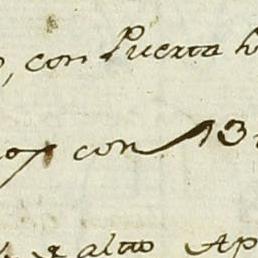 con Puerta
con 13
alto Ap